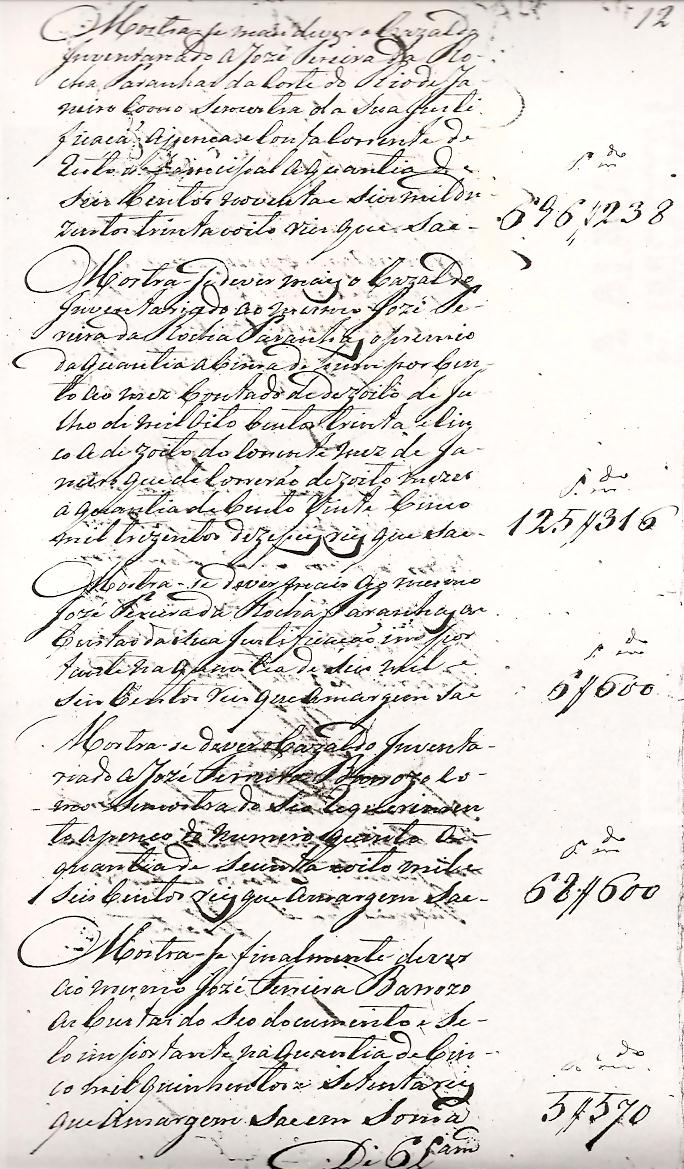 12
Mostra-se mais dever o Cazal do
Inventariado a José Pereira da Ro-
cha Paranhas da Corte do Rio de Ja-
neiro Como Semostra da Sua Justi-
ficaçaõ apença e Conta Corrente de
Resto de Principal a quantia de
Seis Centos noventa e Seis mil du-
zentos trinta e oito reis que Sae-
696//238
Mostra-se dever mais o Cazal do
Inventariado ao mesmo José Pe-
reira da Rocha Paranhas o premio
da quantia aSima de hum por Cen-
to ao mez Contado de dezoito de Ju-
lho de mil oito Centos trinta e Cin-
co a dezoito do Corrente mez de Ja-
neiro que de Correrão dezoito mezes
a quantia de Cento Vinte Cinco
mil trezentos dezeseis reis que Sae-
125//316
Mostra-se dever mais ao mesmo
José Pereira da Rocha Paranhas as
Custas da Sua Justificaçaõ impor-
tante na quantia de Seis mil e
Seis Centos reis que amargem Sae
6//600
Mostra-se dever o Cazal do Inventa-
riado a José Ferreira Barrozo Co-
mo Semostra do Seo Requerimen-
to apenço de numero quarto a
quantia de Secenta e oito mil e
Seis Centos reis que amargem Sae-
68//600
Mostra-se finalmente dever
ao mesmo José Ferreira Barrozo
as Custas do Seo documento e Se-
lo importante na quantia de Cin-
co mil quinhentos e Setenta reis
que amargem Sae em Soma
5//570